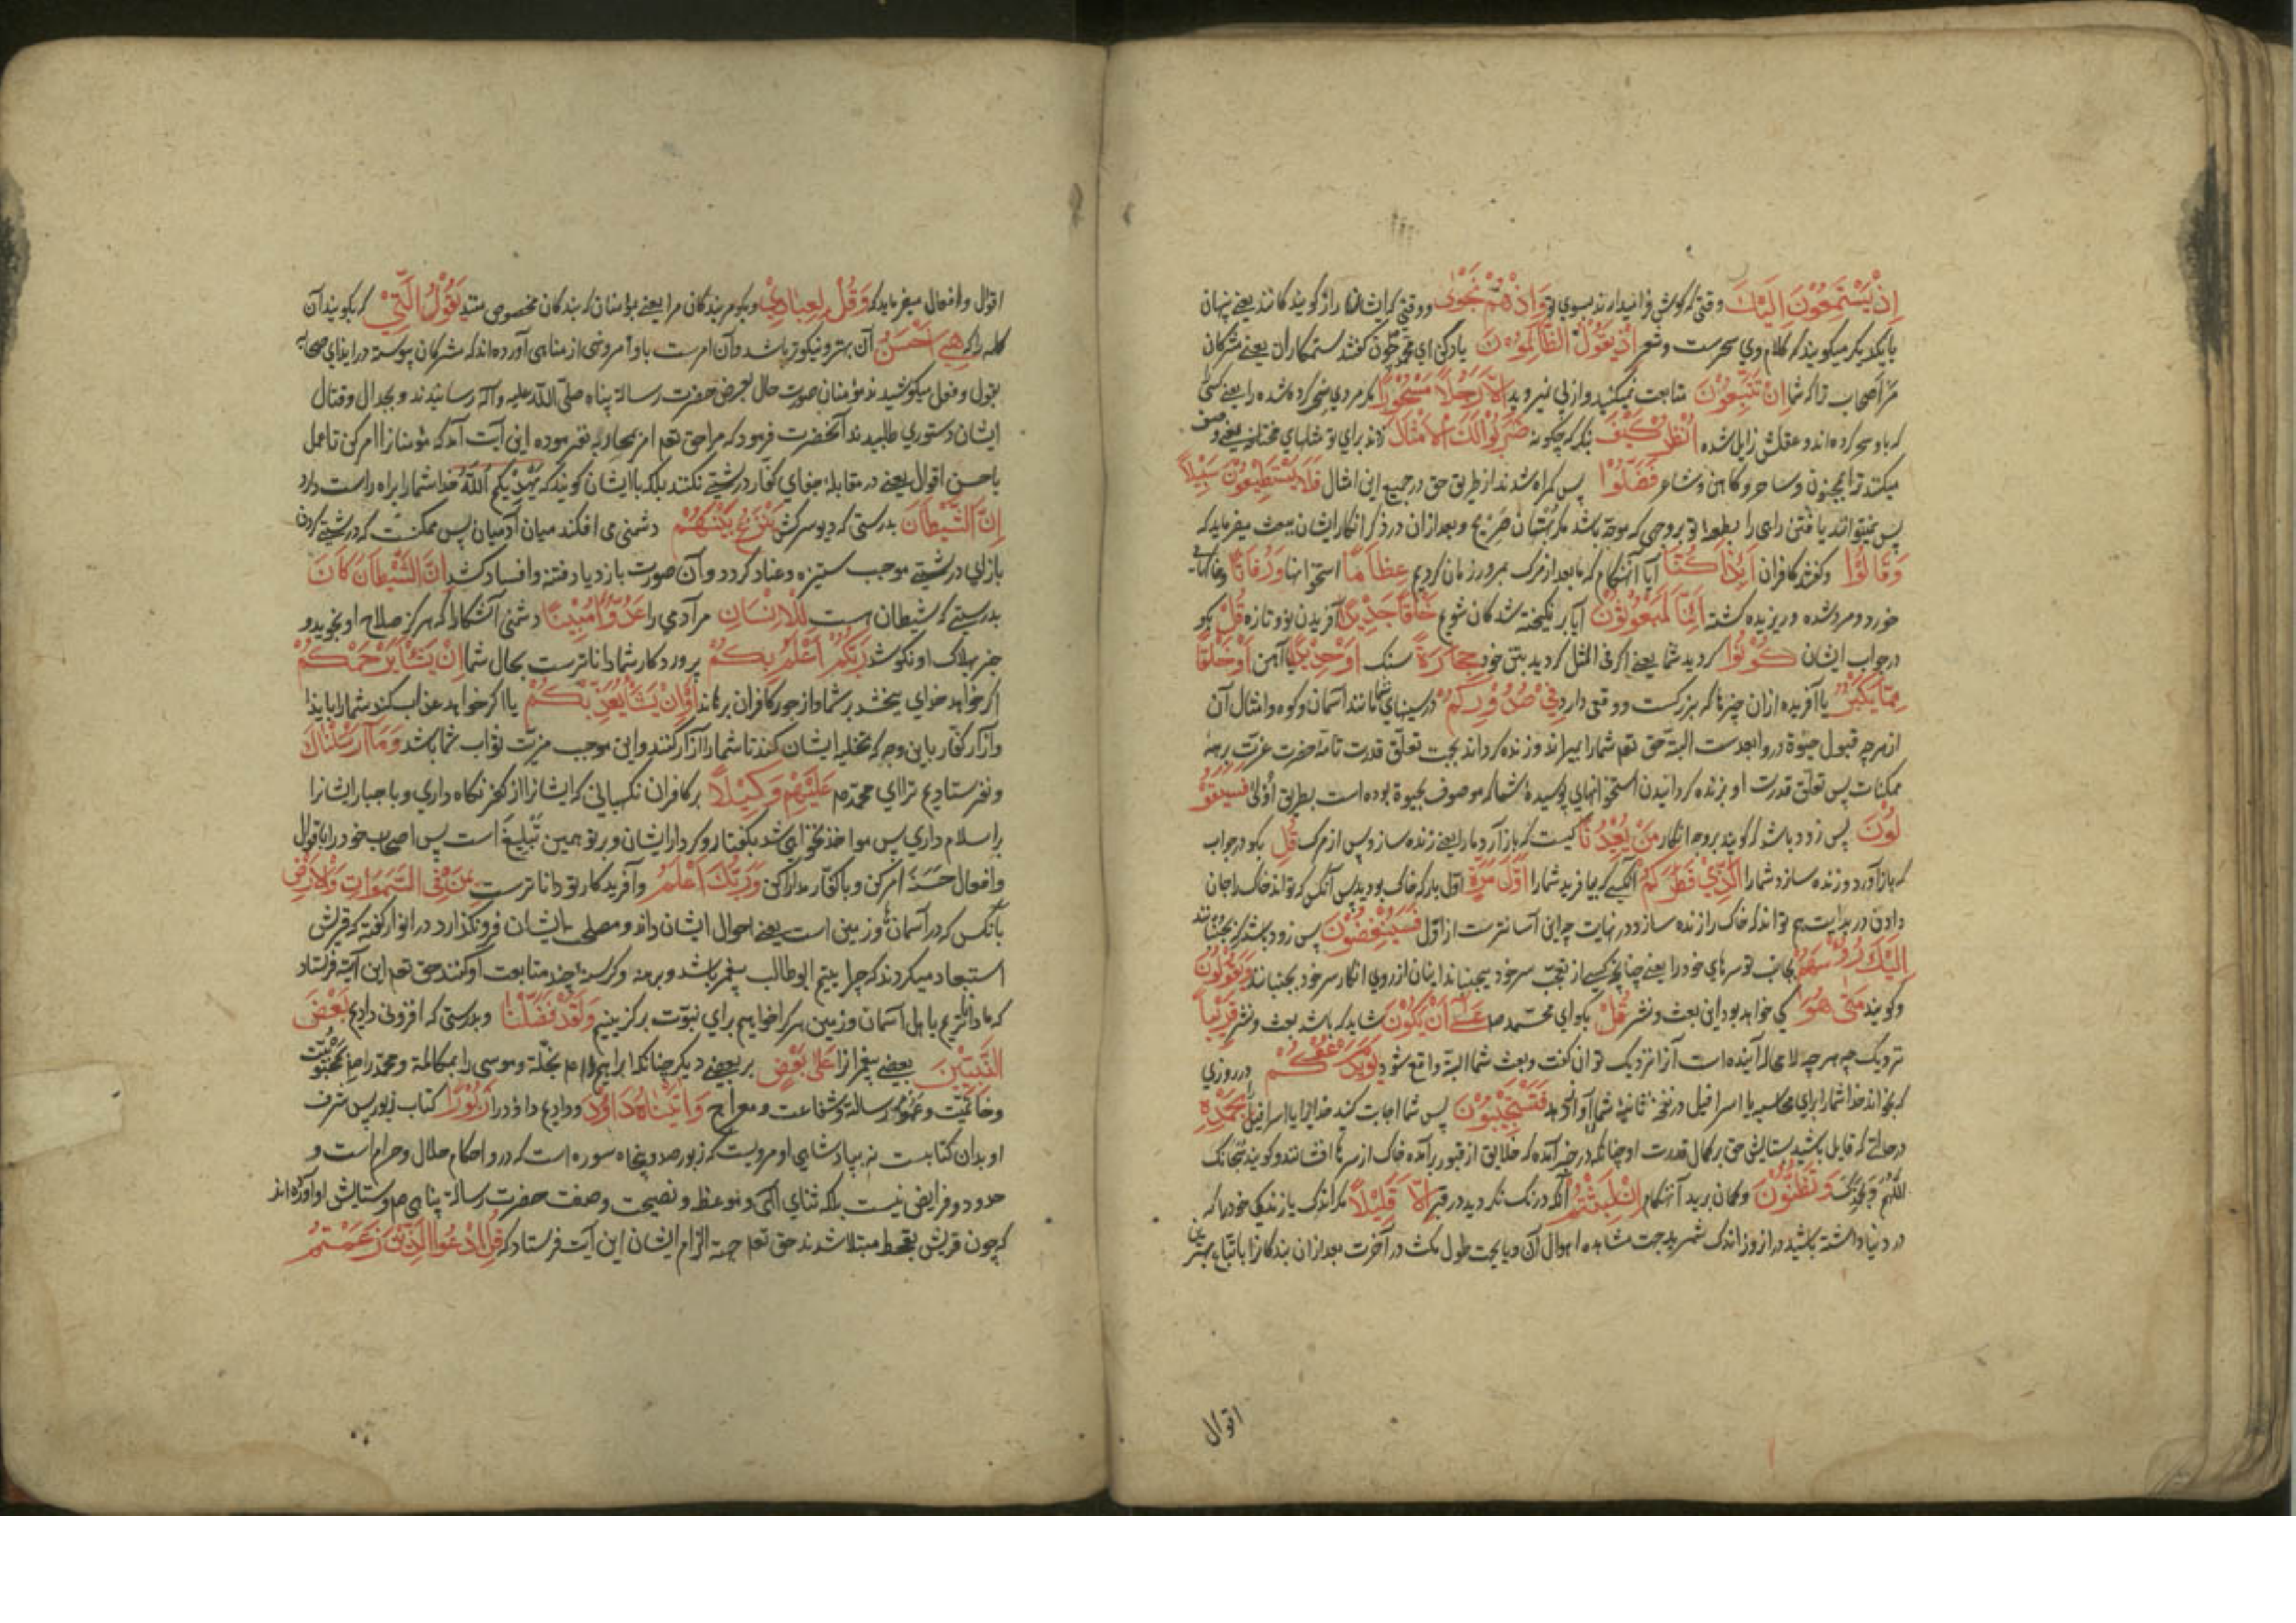 إِذْ يَسْتَمِعُوْنَ اِلَيْكَ وقتی که کوش فرا میدارند بسوی تو وَاِذْ هُمْ نَجْوٰى ووقتی که ایشان راز کویند کانند یعنے پنهان
بایکدیکر میکویند که کلام وي سحرست وشعر اِذْ يَقُوْلُ الظَّالِمُوْنَ یاد کن ای محمد چون کفتند ستمکاران یعنے مشرکان
مر اصحاب ترا که شما اِنْ تَتَّبِعُوْنَ متابعت نمیکنید واز پی نمیروید اِلَّا رَجُلًا مَسْحُوْرًا مکر مردي سحر کرده شده را یعنے کسی
که باو سحر کرده اند وعقلش زایل شده اُنْظُرْ كَيْفَ بنکر که چکونه ضَرَبُوْا لَكَ الْاَمْثَالَ زدند برای تو مثلهای مختلف یعنے وصف
میکنند ترا بمجنون وساحر وکاهن وشاعر فَضَلُّوْا پس کمراه شدند از طریق حق در جمیع این امثال فَلَا يَسْتَطِيْعُوْنَ سَبِيْلًا
پس نمیتوانند یافتن راهی را بطعن تو بروجهی که موجه باشد مکر بهتان صریح وبعد ازان در ذکر انکار ایشان ببعث میفرماید که
وَقَالُوْا وکفتند کافران اَئِذَا كُنَّا آیا آنهنکام که ما بعد از مرک بمرور زمان کردیم عِظَامًا استخوانها وَرُفَاتًا وخاکهای
خورد ومرد شده وریزیده کشته اَئِنَّا لَمَبْعُوْثُوْنَ آیا برانکیخته شدکان شویم خَلْقًا جَدِيْدًا آفریدن نو وتازه قُلْ بکو
در جواب ایشان كُوْنُوْا کردید شما یعنے اکر فی المثل کردید بتن خود حِجَارَةً سنک اَوْ حَدِيْدًا یا آهن اَوْ خَلْقًا
مِمَّا يَكْبُرُ یا آفریده ازان چیزها که بزرکست ووقعی دارد فِيْ صُدُوْرِكُمْ در سینهای شما مانند آسمان وکوه وامثال آن
از هر چه قبول حیوة درو ابعدست البته حق تعم شما را بمیراند وزنده کرداند بجهت تعلق قدرت تامهٔ حضرت عزت برهمهٔ
ممکنات پس تعلق قدرت او بزنده کردانیدن استخوانهای پوسیدهٔ شما که موصوف بحیوة بوده است بطریق اولی فَسَيَقُوْ
لُوْنَ پس زود باشد که کویند بروجه انکار مَنْ يُعِيْدُنَا کیست که باز آرد ما را یعنے زنده سازد پس از مرک قُلِ بکو در جواب
که باز آورد وزنده سازد شما را الَّذِيْ فَطَرَكُمْ آنکسے که بیافرید شما را اَوَّلَ مَرَّةٍ اول بار که خاک بودید پس آنکس که تواند خاک را جان
دادن در بدایت هم تواند که خاک را زنده سازد در نهایت چه این آسانترست از اول فَسَيُنْغِضُوْنَ پس زود باشد که بجنبانند
اِلَيْكَ رُءُوْسَهُمْ بجانب تو سرهای خود را یعنے چنانچه کسے از تعجب سر خود میجنباند اینان از روی انکار سر خود بجنبانند وَيَقُوْلُوْنَ
وکویند مَتٰى هُوَ کی خواهد بود این بعث ونشر قُلْ بکو ای محمد صم عَسٰى اَنْ يَكُوْنَ شاید که باشد بعث ونشر قَرِيْبًا
نزدیک چه هر چه لا محاله آینده است آنرا نزدیک توان کفت وبعث شما البته واقع شود يَوْمَ يَدْعُوْكُمْ در روزی
که بخواند خدا شما را برای محاسبه یا اسرافیل در نفخهٔ ثانیه شما را آواز دهد فَتَسْتَجِيْبُوْنَ پس شما اجابت کنید خدایرا یا اسرافیل را بِحَمْدِهٖ
در حالتے که قایل باشید بستایش حق برکمال قدرت او چنانکه در خبر آمده که خلایق از قبور برآمده خاک از سرها افشانند وکویند سبحانک
اللهم وبحمدک وَتَظُنُّوْنَ وکمان برید آنهنکام اِنْ لَبِثْتُمْ آنکه درنک نکردید در قبر اِلَّا قَلِيْلًا مکر اندک یا زندکی خود را که
در دنیا داشته باشید دراز وز اندک شمرید جهت مشاهدهٔ اهوال آن ویا بجهت طول مکث در آخرت بعد ازان بندکانرا باتباع بهترین
اقوال
اقوال وافعال میفرماید که وَقُلْ لِعِبَادِيْ وبکو مر بندکان مرا یعنے مؤمنان که بندکان مخصوص منند يَقُوْلُ الَّتِيْ که بکویند آن
کلمه را که هِيَ اَحْسَنُ آن بهتر ونیکوتر باشد وآن امرست باوامر ونهی از مناهی آورده اند که مشرکان پیوسته در ایذای صحابه
بقول وفعل میکوشیدند مؤمنان صورت حال بعرض حضرت رسالة پناه صلّی اللّه علیه وآله رسانیدند وبجدال وقتال
ایشان دستوري طلبیدند آنحضرت فرمود که مرا حق تعم امر بمحاربه نفرموده این آیت آمد که مؤمنانرا امر کن تا عمل
باحسن اقوال یعنے در مقابلهٔ جفای کفّار درشتے نکنند بلکه با ایشان کویند که یهدیکم الله خدا شما را براه راست دارد
اِنَّ الشَّيْطَانَ بدرستی که دیو سرکش يَنْزَغُ بَيْنَهُمْ دشمنی می افکند میان آدمیان پس ممکنست که درشتے کردن
بازای درشتے موجب ستیزه وعناد کردد وآن صورت بازدیاد فتنه وافساد کشد اِنَّ الشَّيْطَانَ كَانَ
بدرستے که شیطان هست لِلْاِنْسَانِ مر آدمي را عَدُوًّا مُبِيْنًا دشمنی آشکارا که هرکز صلاح او نجوید و
جز بهلاک او نکوشد رَبُّكُمْ اَعْلَمُ بِكُمْ پروردکار شما داناترست بحال شما اِنْ يَشَأْ يَرْحَمْكُمْ
اکر خواهد خدای بخشد بر شما واز جور کافران برهاند اَوْ اِنْ يَشَأْ يُعَذِّبْكُمْ یا اکر خواهد عذاب کند شما را بایذا
وآزار کفار باین وجه که تخلیه ایشان کند تا شما را آزار کنند واین موجب مزیت ثواب شما باشد وَمَا اَرْسَلْنَاكَ
ونفرستادیم ترا ای محمد صم عَلَيْهِمْ وَكِيْلًا بر کافران نکهبانی که ایشانرا از کفر نکاه داري وبا جبار ایشانرا
بر اسلام داري پس مواخذ نخواهی شد بکفتار وکردار ایشان وبر تو همین تبلیغ است پس اصحاب خود را باقوال
وافعال حسنه امر کن وبا کفّار مدارا کن وَرَبُّكَ اَعْلَمُ وآفریدکار تو داناترست بِمَنْ فِي السَّمٰوَاتِ وَالْاَرْضِ
بآنکس که در آسمانها وزمین است یعنے احوال ایشان داند ومصلحت ایشان فرونکذارد در انوار کفته که قریش
استبعاد میکردند که چرا یتیم ابوطالب پیغمبر باشد وبرهنه وکرسنهٔ چند متابعت او کنند حق تعم این آیة فرستاد
که ما داناتریم باهل آسمان وزمین هر کرا خواهیم برای نبوت برکزینیم وَلَقَدْ فَضَّلْنَا وبدرستی که افزونی دادیم بَعْضَ
النَّبِيِّيْنَ بعضے پیغمبرانرا عَلٰى بَعْضٍ بر بعضے دیکر چنانکه ابراهیم را بخلّة وموسی را بمکالمة ومحمد را صم بمحبوبیت
وخاتمیت وعموم رسالة وشفاعت ومعراج وَاٰتَيْنَا دَاوٗدَ ودادیم داؤد را زَبُوْرًا کتاب زبور پس شرف
او بدان کتابست نه بپادشاهی او مرویست که زبور صد وپنجاه سوره است که درو احکام حلال وحرام است و
حدود وفرایض نیست بلکه ثنای الهی وموعظه ونصیحت وصفت حضرت رسالة پناهی صم وستایش او آورده اند
که چون قریش بقحط مبتلا شدند حق تعم جهة الزام ایشان این آیت فرستاد که قُلِ ادْعُوا الَّذِيْنَ زَعَمْتُمْ